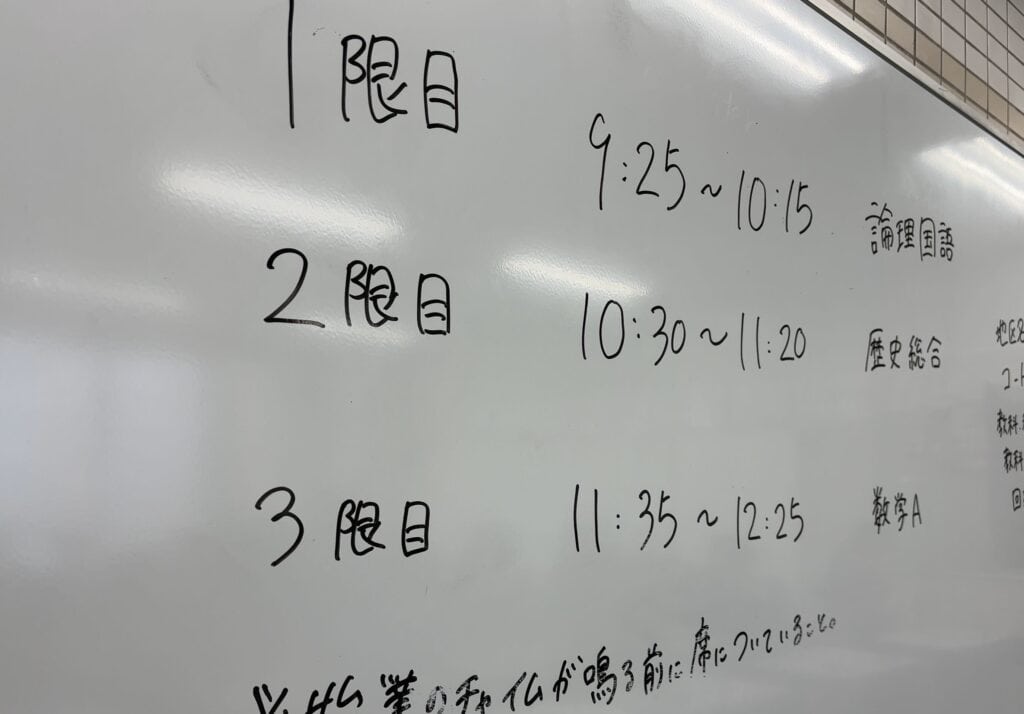 1限目 9:25~10:15 論理国語
2限目 10:30~11:20 歴史総合
3限目 11:35~12:25 数学A
のチャイムが鳴る前に席についていること。
地区
コー
教科
教科
回